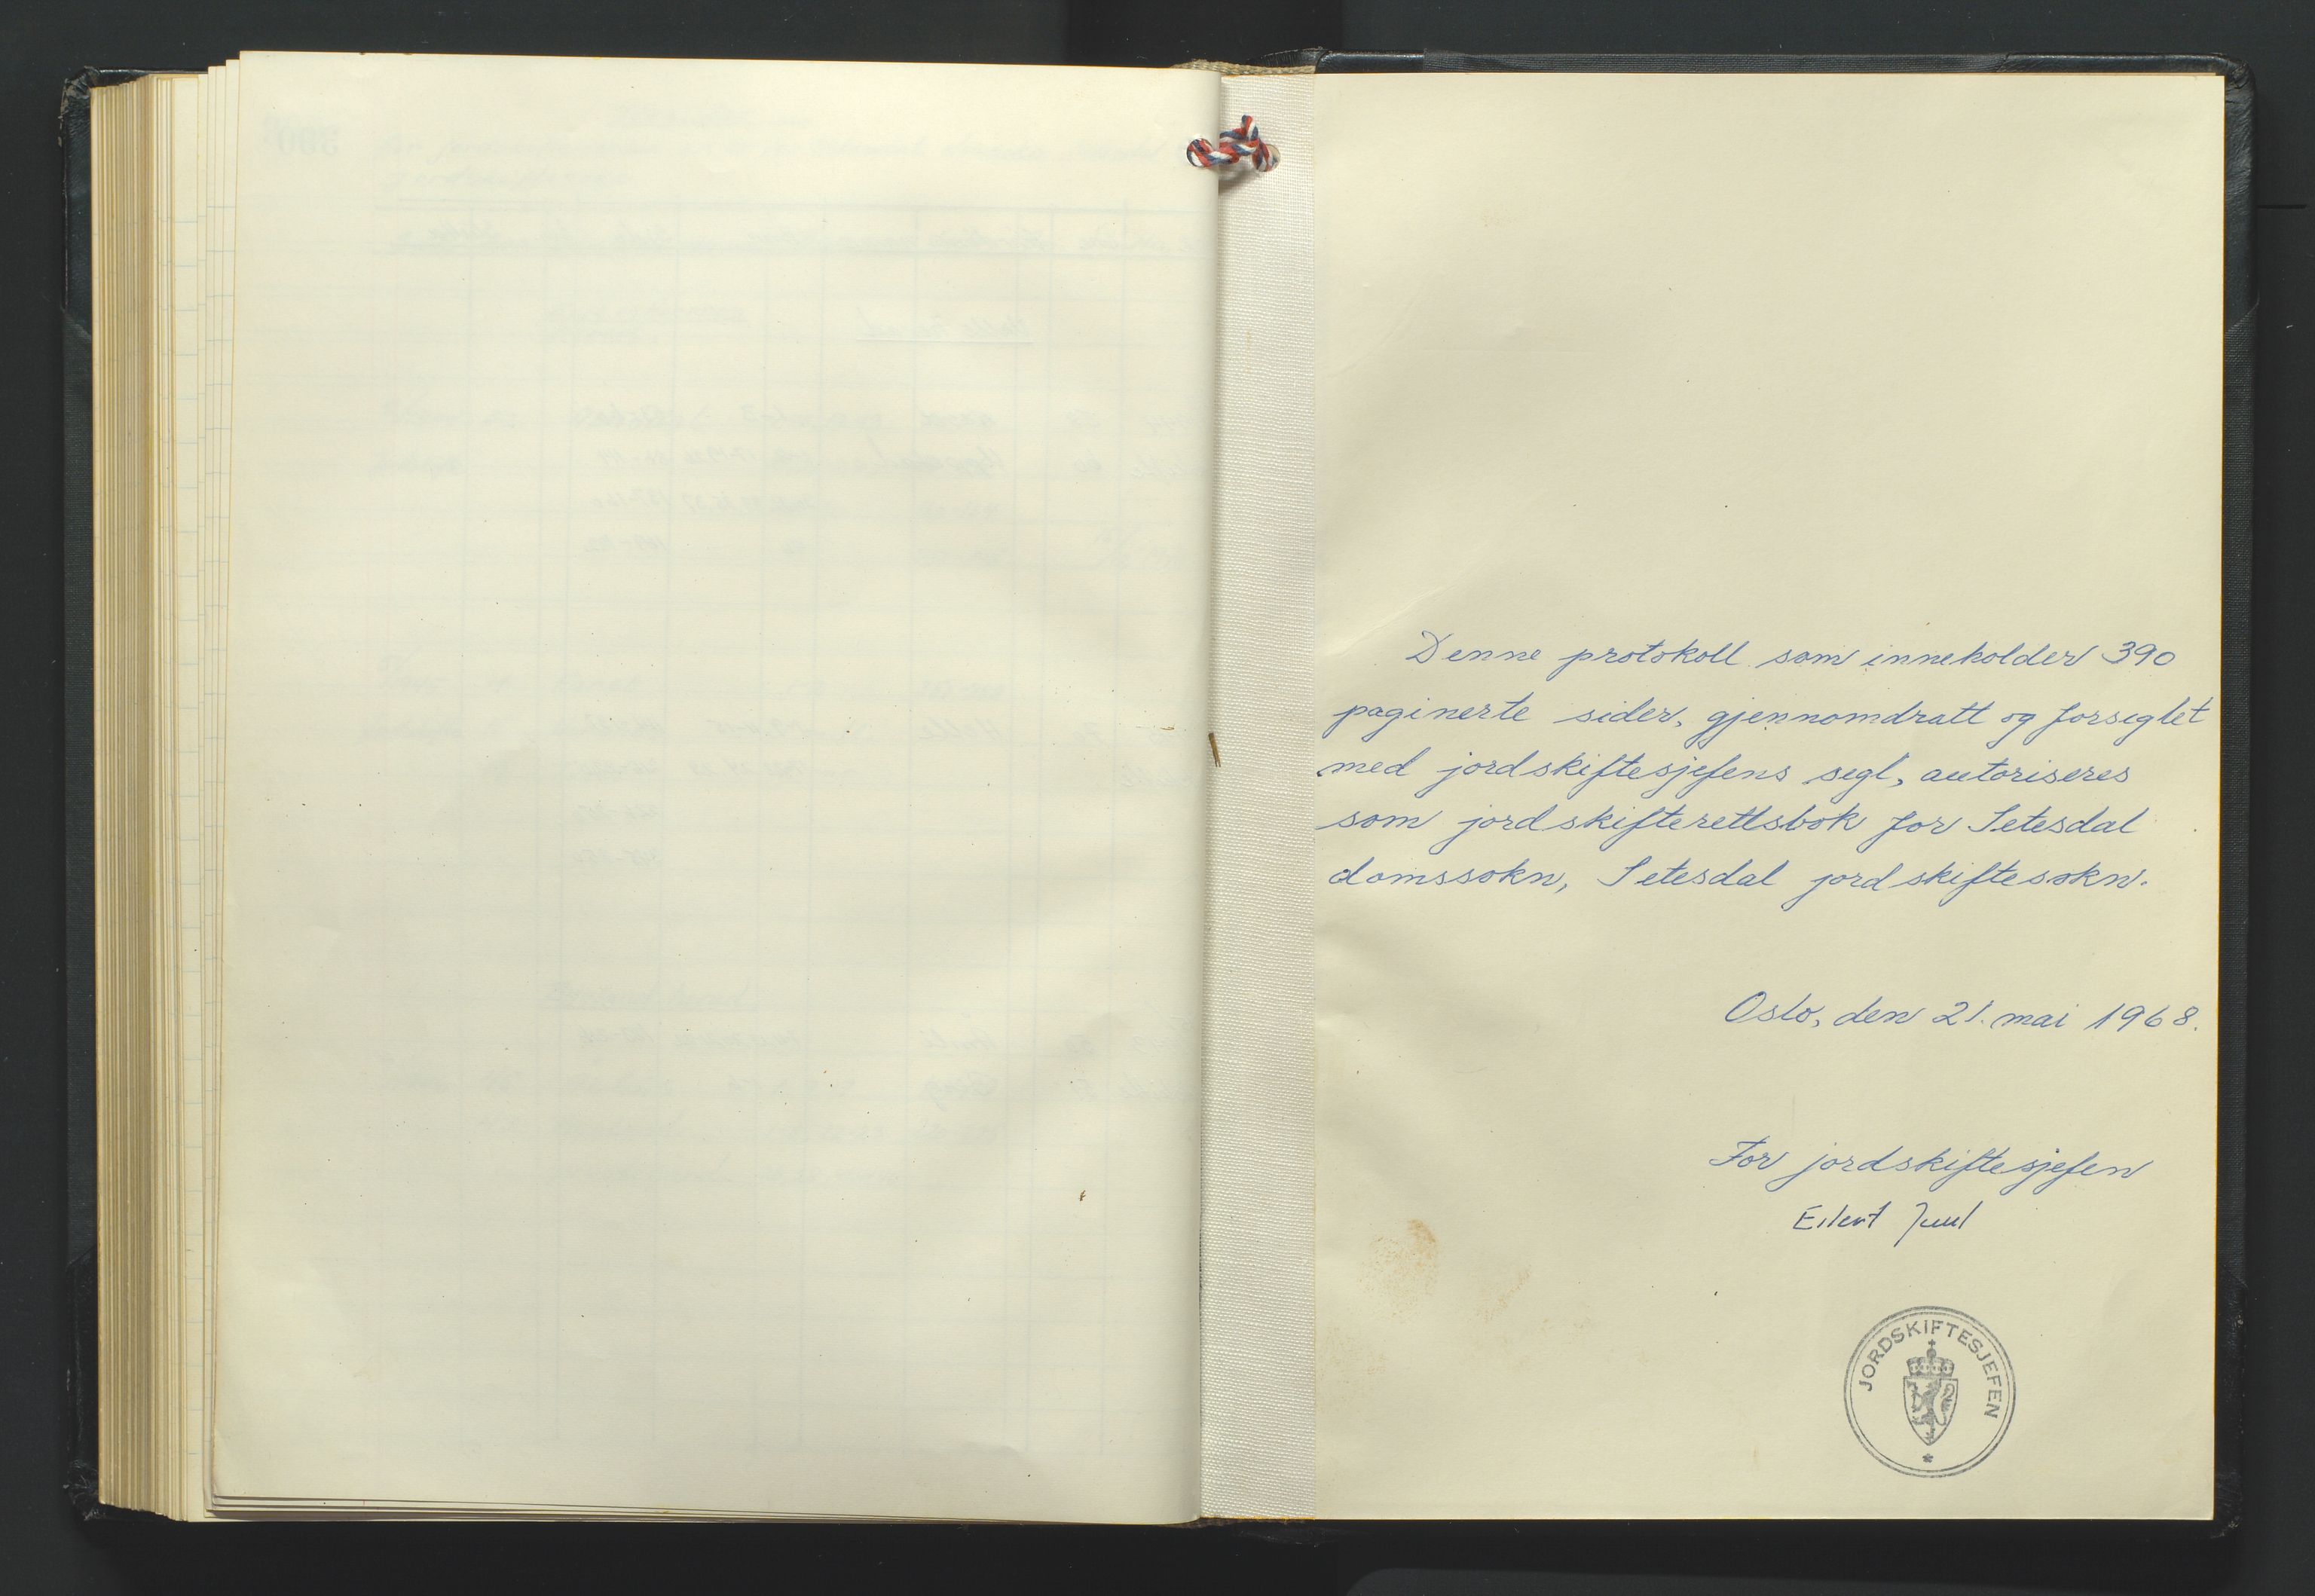 Denne protokoll som inneholder 390
paginerte sider, gjennomdratt og forseglet
med jordskiftesjefens segl, autoriseres
som jordskifterettsbok for Setesdal
domssokn, Setesdal jordskiftesokn.
Oslo, den 21. mai 1968.
For jordskiftesjefen
Eilert Juul
JORDSKIFTESJEFEN